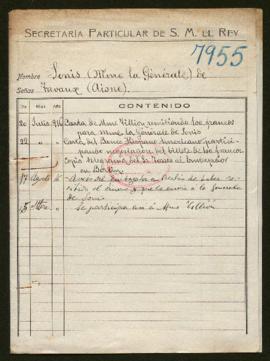 SECRETARÍA PARTICULAR DE S. M. EL REY
7955
Nombre Sonis (Mme la Générale) de
Señas Trevaux (Aione).
Día Mes Año CONTENIDO
20 Julio 916 Carta de Mme Villion remitiendo 100 francos
para Mme la Générale de Sonis
22 " " Carta del Banco Hispano Americano partici-
pando negociación del billete de 100 francos
Copia telegrama del Sr Torres al Embajador
en Berlin
17 Agosto 16 de Berlin de haber re-
cibido el dinero y que lo envia a la Generala
de Sonis
5 Se participa así á Mme Villion